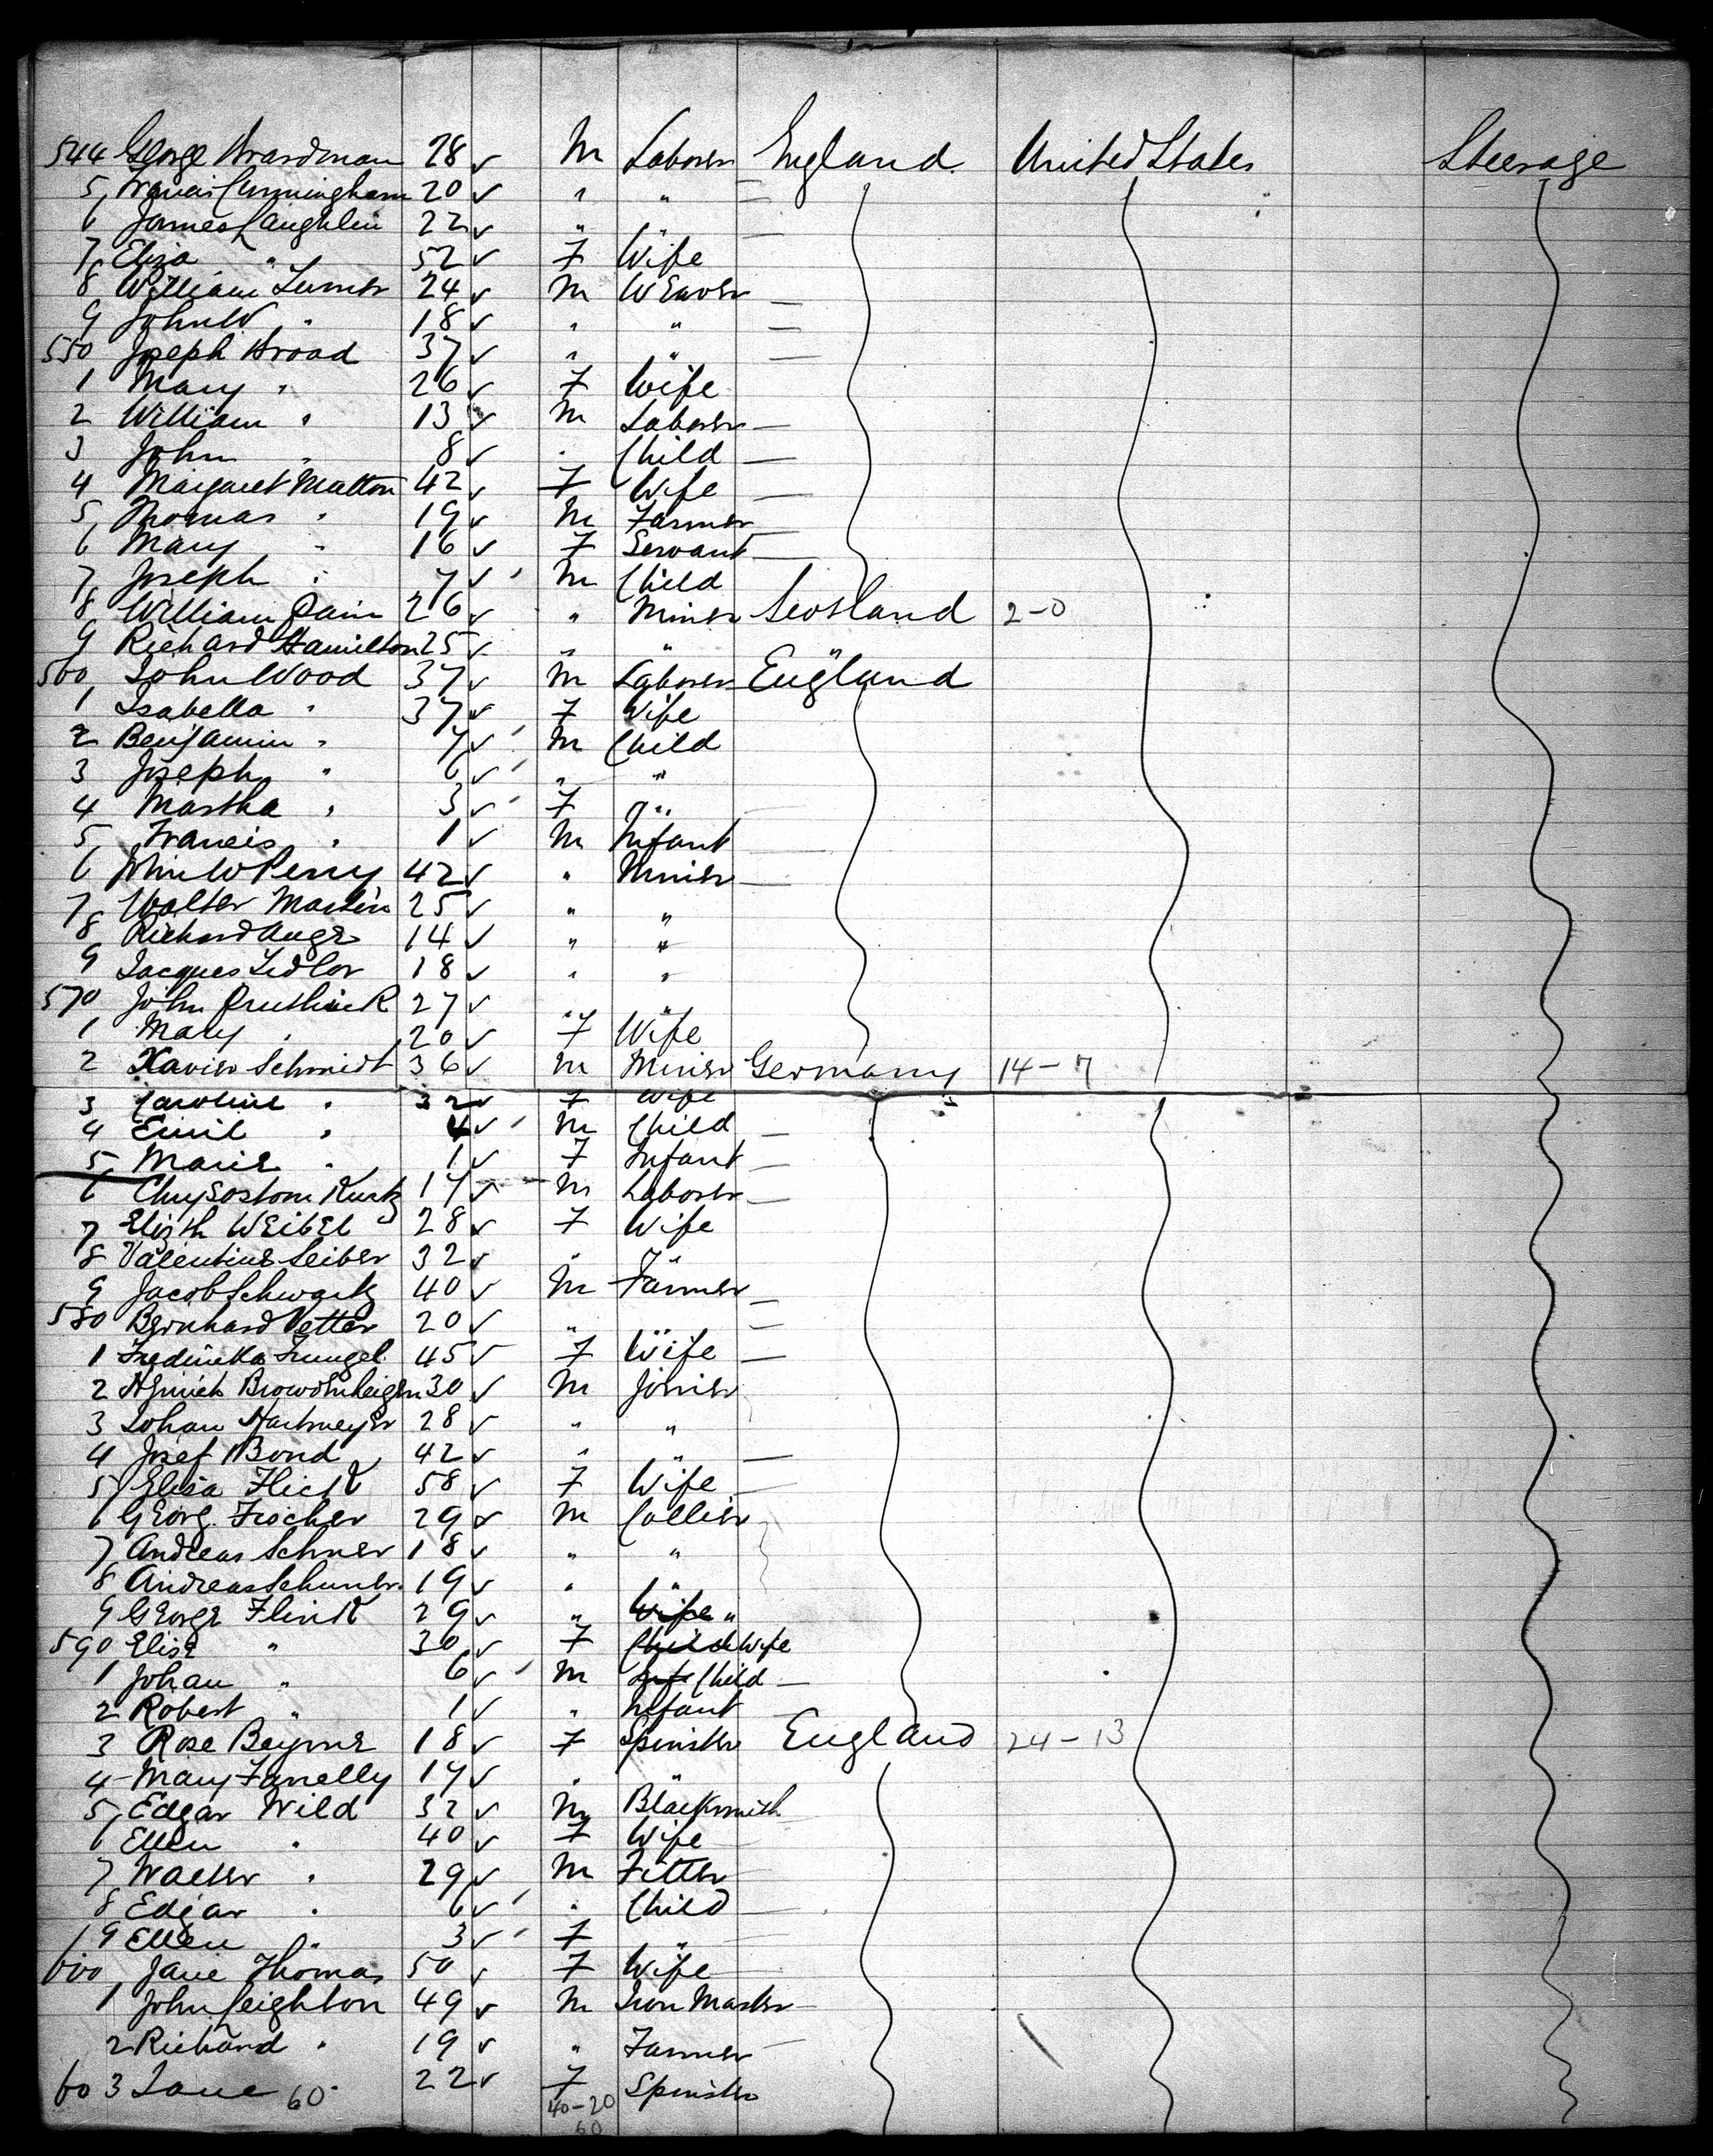 544 George Boardman 28 ✓ M Laborer England United States Steerage
5 Francis Cunningham 20 ✓ " "
6 James Laughlin 22 ✓ " "
7 Eliza " 52 ✓ F Wife
8 William Turner 24 ✓ M Weaver
9 John W " 18 ✓ " "
550 Joseph Broad 37 ✓ " "
1 Mary " 26 ✓ F Wife
2 William " 13 ✓ M Laborer
3 John " 8 ✓ " Child
4 Margaret Mutton 42 ✓ F Wife
5 Thomas " 19 ✓ M Farmer
6 Mary " 16 ✓ F Servant
7 Joseph " 7 ✓ M Child
8 William Pain 26 ✓ " Miner Scotland 2-0
9 Richard Hamilton 25 ✓ " " "
560 John Wood 37 ✓ M Laborer England
1 Isabella " 37 ✓ F Wife
2 Benjamin " 7 ✓ M Child
3 Joseph " 6 ✓ " "
4 Martha " 3 ✓ F "
5 Francis " 1 ✓ M Infant
6 John W Perry 42 ✓ " Miner
7 Walter Martin 25 ✓ " "
8 Richard Auge 14 ✓ " "
9 Jacques 18 ✓ " "
570 John 27 ✓ " "
1 Mary " 20 ✓ F Wife
2 Xavier Schmidt 36 ✓ M Miner Germany 14-7
3 Caroline " 32 ✓ F Wife
4 Emil " 4 ✓ M Child
5 Marie " 1 ✓ F Infant
6 Chrysostom Kurtz 17 ✓ M Laborer
7 Elizth Weibel 28 ✓ F Wife
8 Valentine Seiber 32 ✓ " "
9 Jacob Schwartz 40 ✓ M Farmer
580 Bernhard Vetter 20 ✓ " "
1 Fredericka 45 ✓ F Wife
2 Heinrich 30 ✓ M Joiner
3 Johan Hartmeyer 28 ✓ " "
4 Josef Bond 42 ✓ " "
5 Elisa Flick 58 ✓ F Wife
6 Georg Fischer 29 ✓ M Collier
7 Andreas Schner 18 ✓ " "
8 Andreas Schuner 19 ✓ " "
9 George Flink 29 ✓ " Wife "
590 Elise " 30 ✓ F Child Wife
1 Johan " 6 ✓ M Inf Child
2 Robert " 1 ✓ " Infant
3 Rose Beyrne 18 ✓ F Spinster England 24-13
4 Mary Fanelly 17 ✓ " "
5 Edgar Wild 32 ✓ M Blacksmith
6 Ellen " 40 ✓ F Wife
7 Walter " 29 ✓ M Fitter
8 Edgar " 6 ✓ " Child
9 Ellen " 3 ✓ F "
600 Jane Thomas 50 ✓ F Wife
1 John Leighton 49 ✓ M Iron Master
2 Richard " 19 ✓ " Farmer
603 Jane " 22 ✓ F Spinster
60 40-20
60